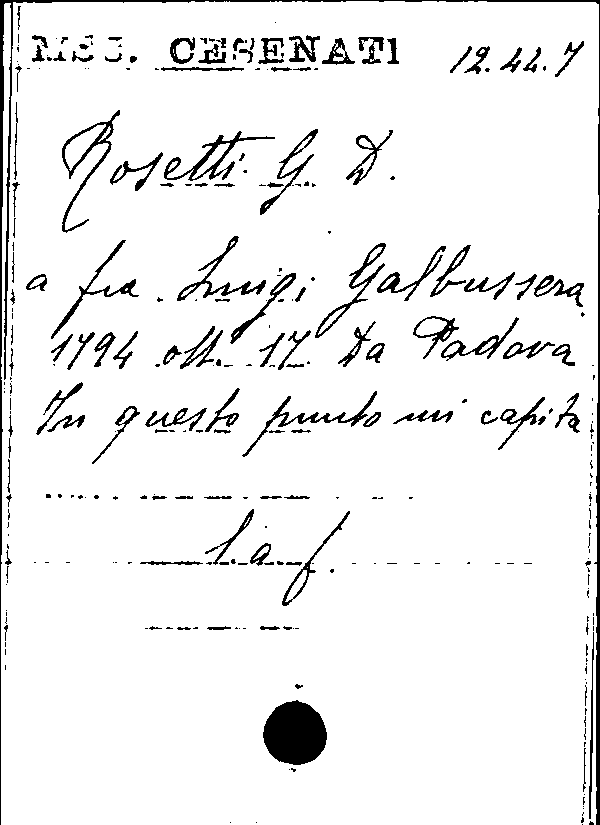 MSS. CESENATI 12.44.7
Rosetti G. D.
a fra Luigi Galbussera
1794 ott. 17 Da Padova
In questo punto mi capita
l. a. f.